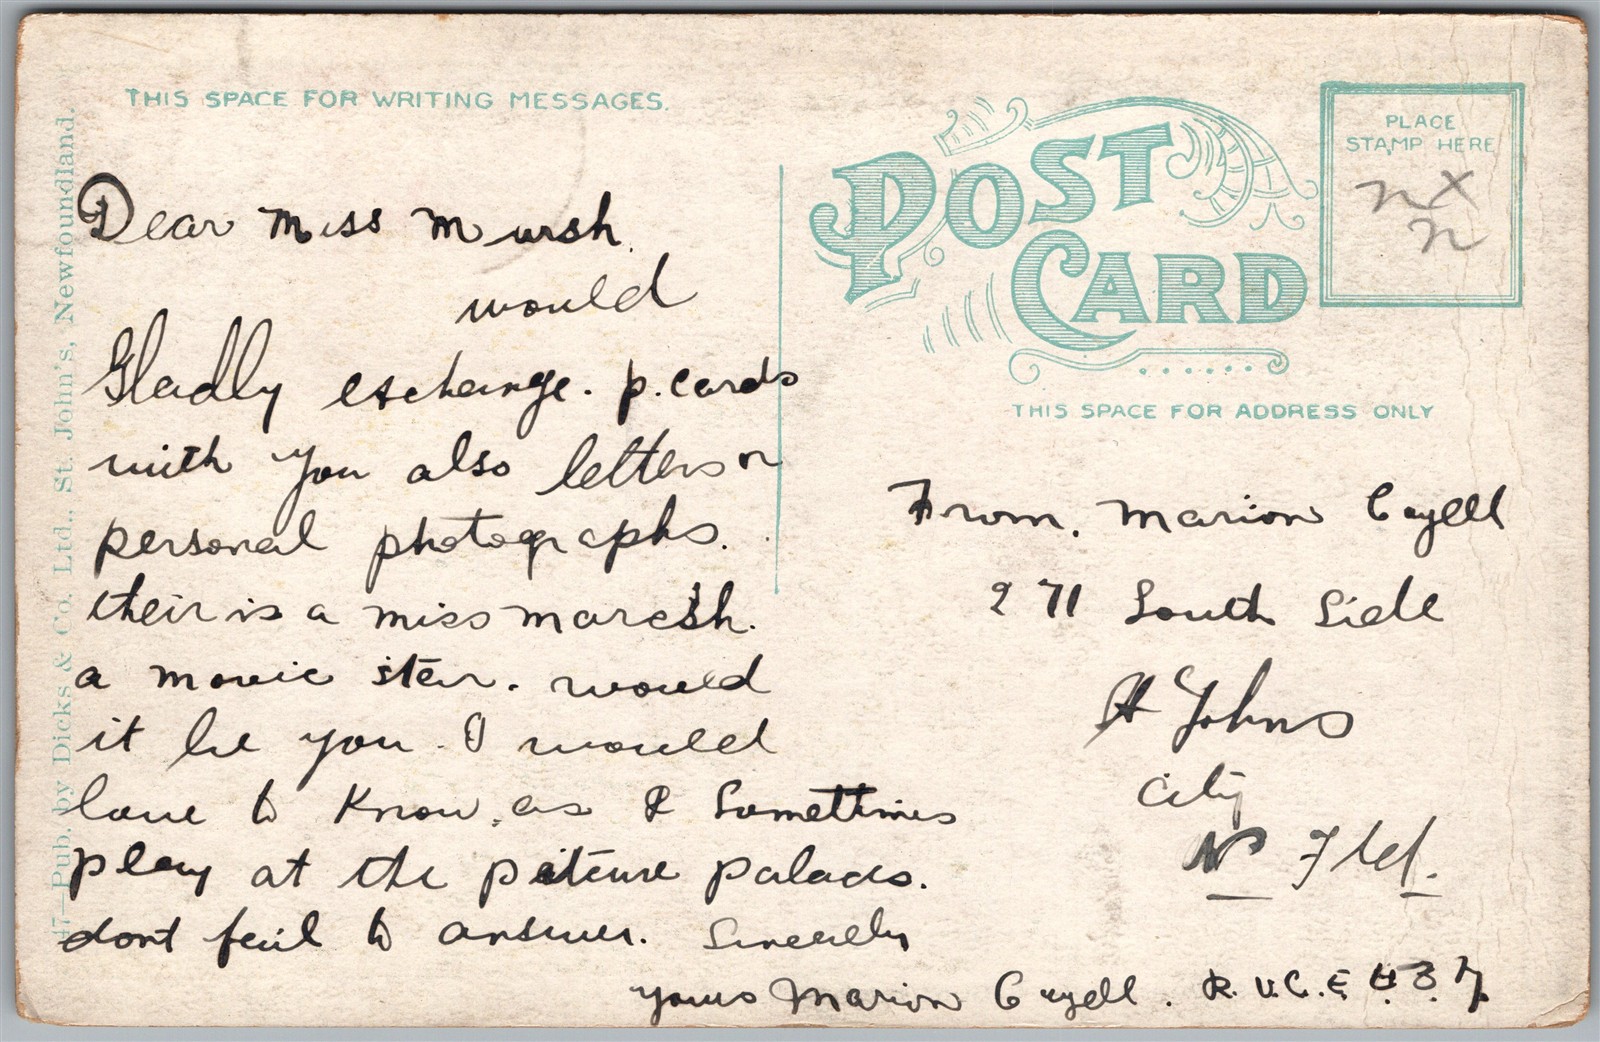 THIS SPACE FOR WRITING MESSAGES.
Dear Miss Mursh.
would
Gladly exchange. p. cards
with you also letters or
personal photographs.
their is a miss marcsh.
a movie star. would
it be you. I would
love to Know. as I Somettimes
play at the picture palaces.
dont fail to answer. Sincerely
yours Marion Cayell. R. V. C. E
47—Pub. by Dicks & Co. Ltd., St. John's, Newfoundland.
POST CARD
PLACE
STAMP HERE
THIS SPACE FOR ADDRESS ONLY
From. Marion Cayell
271 South Side
St Johns
City
N Fld.